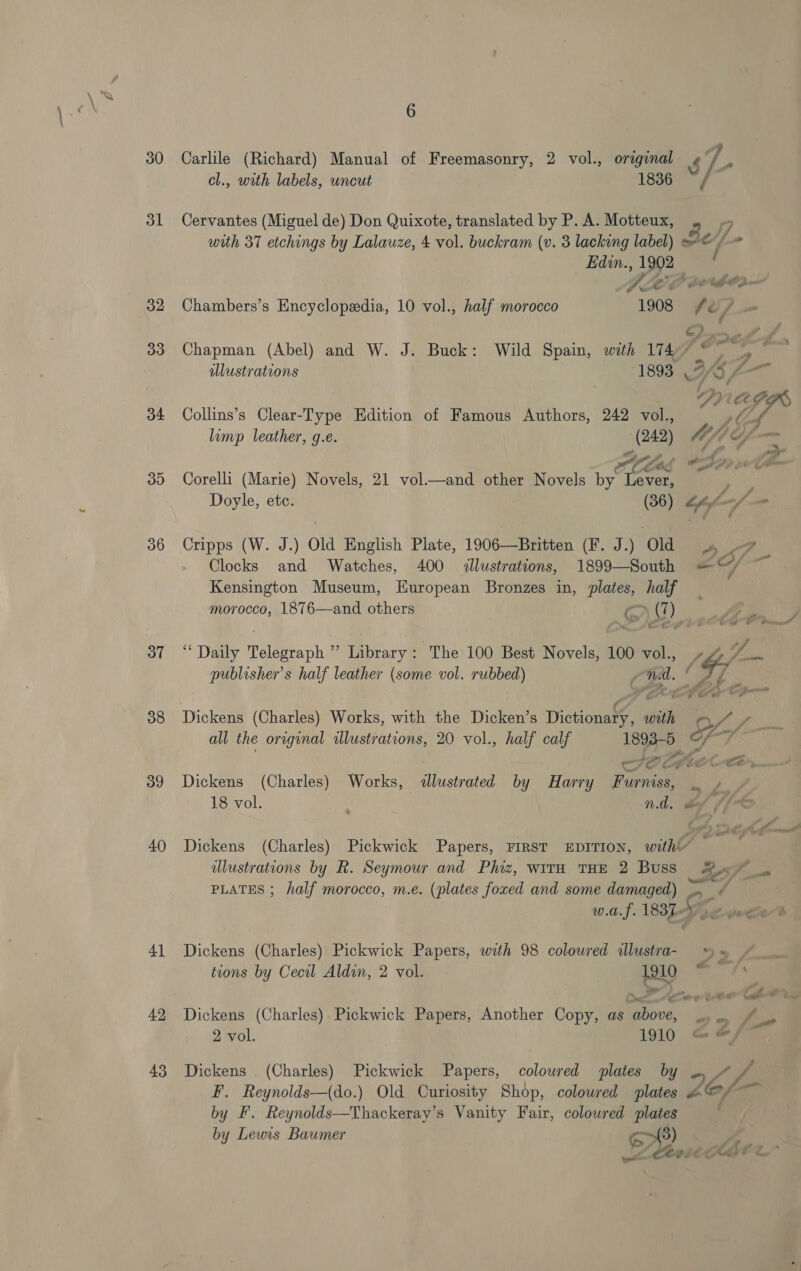 6
30 Carlile (Richard) Manual of Freemasonry, 2 vol., original
cl., with labels, uncut 1836
31 Cervantes (Miguel de) Don Quixote, translated by P. A. Motteux,
with 37 etchings by Lalauze, 4 vol. buckram (v. 3 lacking label)
Edin., 1902
32 Chambers's Encyclopædia, 10 vol., half morocco 1908
33 Chapman (Abel) and W. J. Buck: Wild Spain, with 174
illustrations 1893
34 Collins's Clear-Type Edition of Famous Authors, 242 vol.,
limp leather, g.e. (242)
35 Corelli (Marie) Novels, 21 vol.—and other Novels by Lever,
Doyle, etc. (36)
36 Cripps (W. J.) Old English Plate, 1906—Britten (F. J.) Old
Clocks and Watches, 400 illustrations, 1899—South
Kensington Museum, European Bronzes in, plates, half
morocco, 1876—and others (7)
37 “Daily Telegraph” Library: The 100 Best Novels, 100 vol.,
publisher's half leather (some vol. rubbed) n.d.
38 Dickens (Charles) Works, with the Dicken's Dictionary, with
all the original illustrations, 20 vol., half calf 1893-5
39 Dickens (Charles) Works, illustrated by Harry Furniss,
18 vol. n.d.
40 Dickens (Charles) Pickwick Papers, FIRST EDITION, with
illustrations by R. Seymour and Phiz, WITH THE 2 BUSS
PLATES; half morocco, m.e. (plates foxed and some damaged)
w.a.f. 1837
41 Dickens (Charles) Pickwick Papers, with 98 coloured illustra-
tions by Cecil Aldin, 2 vol. 1910
42 Dickens (Charles) Pickwick Papers, Another Copy, as above,
2 vol. 1910
43 Dickens (Charles) Pickwick Papers, coloured plates by
F. Reynolds—(do.) Old Curiosity Shop, coloured plates
by F. Reynolds—Thackeray's Vanity Fair, coloured plates
by Lewis Baumer (3)